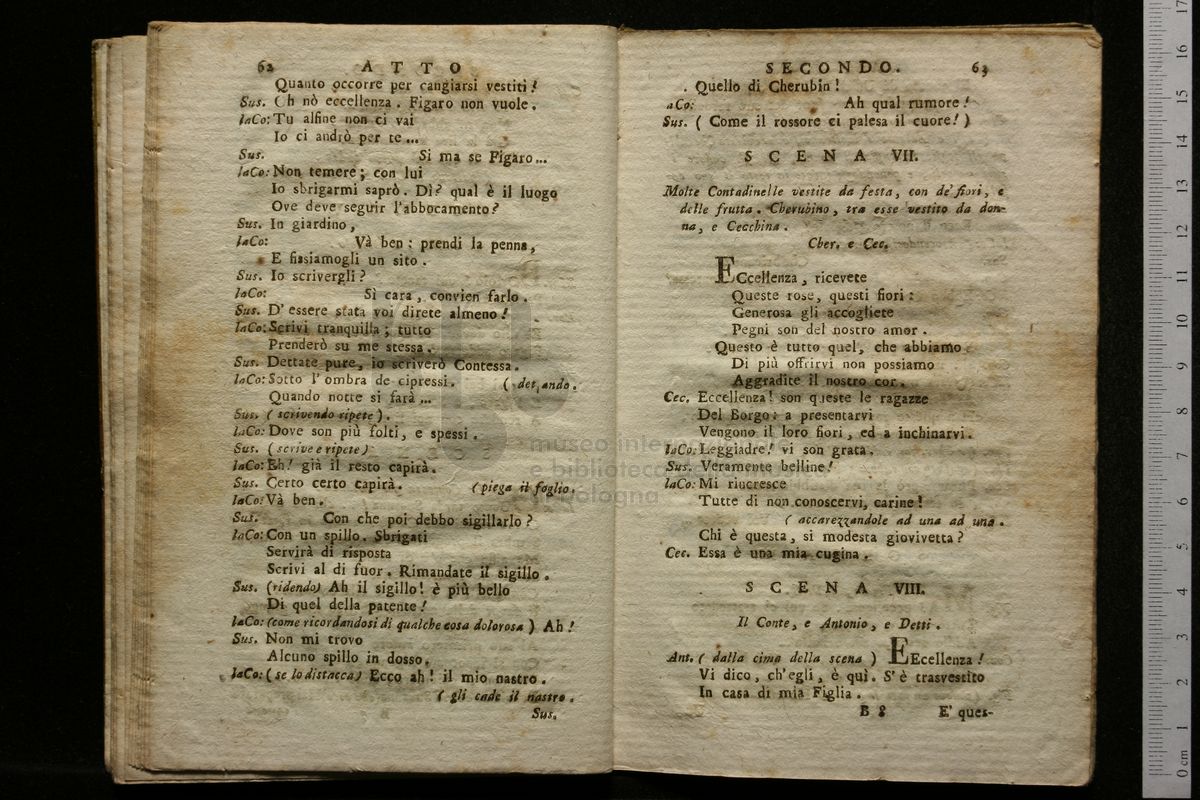 62 ATTO
Quanto occorre per cangiarsi vestiti!
Sus. Oh nò eccellenza. Figaro non vuole.
laCo: Tu alfine non ci vai
Io ci andrò per te...
Sus. Si ma se Figaro...
laCo: Non temere; con lui
Io sbrigarmi saprò. Dì? qual è il luogo
Ove deve seguir l'abboccamento?
Sus. In giardino,
laCo: Và ben: prendi la penna,
E fissiamogli un sito.
Sus. Io scrivergli?
laCo: Sì cara, convien farlo.
Sus. D'essere stata voi direte almeno!
laCo: Scrivi tranquilla; tutto
Prenderò su me stessa.
Sus. Dettate pure, io scriverò Contessa.
laCo: Sotto l'ombra de cipressi. (dettando.
Quando notte si farà...
Sus. (scrivendo ripete).
laCo: Dove son più folti, e spessi.
Sus. (scrive e ripete)
laCo: Eh! già il resto capirà.
Sus. Certo certo capirà. (piega il foglio.
laCo: Và ben.
Sus. Con che poi debbo sigillarlo?
laCo: Con un spillo. Sbrigati
Servirà di risposta
Scrivi al di fuor. Rimandate il sigillo.
Sus. (ridendo) Ah il sigillo! è più bello
Di quel della patente!
laCo: (come ricordandosi di qualche cosa dolorosa) Ah!
Sus. Non mi trovo
Alcuno spillo in dosso.
laCo: (se lo distacca) Ecco ah! il mio nastro.
(gli cade il nastro.
Sus.
SECONDO. 63
. Quello di Cherubin!
aCo: Ah qual rumore!
Sus. (Come il rossore ci palesa il cuore!)
SCENA VII.
Molte Contadinelle vestite da festa, con de' fiori, e
delle frutta. Cherubino, tra esse vestito da don-
na, e Cecchina.
Cher. e Cec.
ECcellenza, ricevete
Queste rose, questi fiori:
Generosa gli accogliete
Pegni son del nostro amor.
Questo è tutto quel, che abbiamo
Di più offrirvi non possiamo
Aggradite il nostro cor.
Cec. Eccellenza! son queste le ragazze
Del Borgo: a presentarvi
Vengono il loro fiori, ed a inchinarvi.
laCo: Leggiadre! vi son grata.
Sus. Veramente belline!
laCo: Mi riucresce
Tutte di non conoscervi, carine!
(accarezzandole ad una ad una.
Chi è questa, si modesta giovivetta?
Cec. Essa è una mia cugina.
SCENA VIII.
Il Conte, e Antonio, e Detti.
Ant. (dalla cima della scena) EEcellenza!
Vi dico, ch'egli, è quì. S'è trasvestito
In casa di mia Figlia.
B 8 E' ques-
museo interna
e biblioteca
bologna
0 cm 1 2 3 4 5 6 7 8 9 10 11 12 13 14 15 16 17